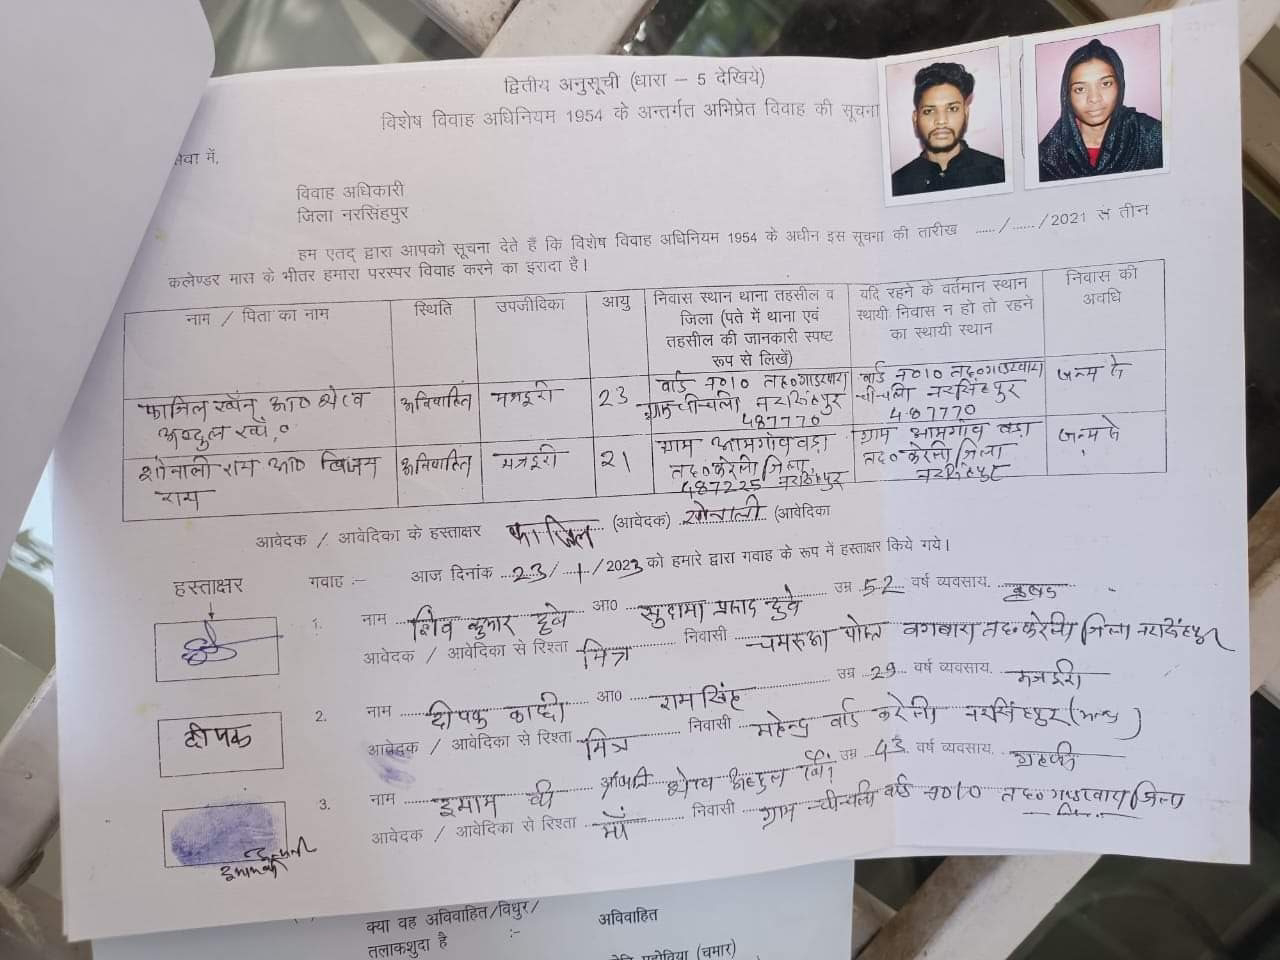 द्वितीय अनुसूची (धारा – 5 देखिये)
विशेष विवाह अधिनियम 1954 के अन्तर्गत अभिप्रेत विवाह की सूचना
सेवा में,
विवाह अधिकारी
जिला नरसिंहपुर
हम एतद् द्वारा आपको सूचना देते हैं कि विशेष विवाह अधिनियम 1954 के अधीन इस सूचना की तारीख ....../....../2021 से तीन
कलेण्डर मास के भीतर हमारा परस्पर विवाह करने का इरादा है।
नाम / पिता का नाम
स्थिति
उपजीविका
आयु
निवास स्थान थाना तहसील व
जिला (पते में थाना एवं
तहसील की जानकारी स्पष्ट
रूप से लिखें)
यदि रहने के वर्तमान स्थान
स्थायी निवास न हो तो रहने
का स्थायी स्थान
निवास की
अवधि
फाजिल खॉन आ0 शेख
अब्दुल
अविवाहित
मजदूरी
23
वार्ड न010 तह0गाडरवारा
ग्राम चीचली नरसिंहपुर
487770
वार्ड न010 तह0गाडरवारा
चीचली नरसिंहपुर
487770
जन्म से
सोनाली राय आ0 विजय
राय
अविवाहित
मजदूरी
21
ग्राम आमगांव बड़ा
तह0करेली जिला
487225 नरसिंहपुर
ग्राम आमगांव बड़ा
तह0करेली जिला
नरसिंहपुर
जन्म से
आवेदक / आवेदिका के हस्ताक्षर फाजिल (आवेदक) सोनाली (आवेदिका
हस्ताक्षर
गवाह :- आज दिनांक 23/1/2023 को हमारे द्वारा गवाह के रूप में हस्ताक्षर किये गये।
1. नाम शिव कुमार दुबे आ0 सुदामा प्रसाद दुबे उम्र 52 वर्ष व्यवसाय. कृषक
आवेदक / आवेदिका से रिश्ता मित्र निवासी पोस्ट तह0करेली जिला नरसिंहपुर
2. नाम दीपक काछी आ0 रामसिंह उम्र 29 वर्ष व्यवसाय. मजदूरी
दीपक
आवेदक / आवेदिका से रिश्ता मित्र निवासी महेन्द्र वार्ड करेली नरसिंहपुर
3. नाम इमाम बी शेख अब्दुल उम्र 43 वर्ष व्यवसाय. ग्रहणी
आवेदक / आवेदिका से रिश्ता माँ निवासी ग्राम चीचली वार्ड न010 तह0गाडरवारा जिला
क्या वह अविवाहित/विधुर/
तलाकशुदा है :-
अविवाहित
(चमार)